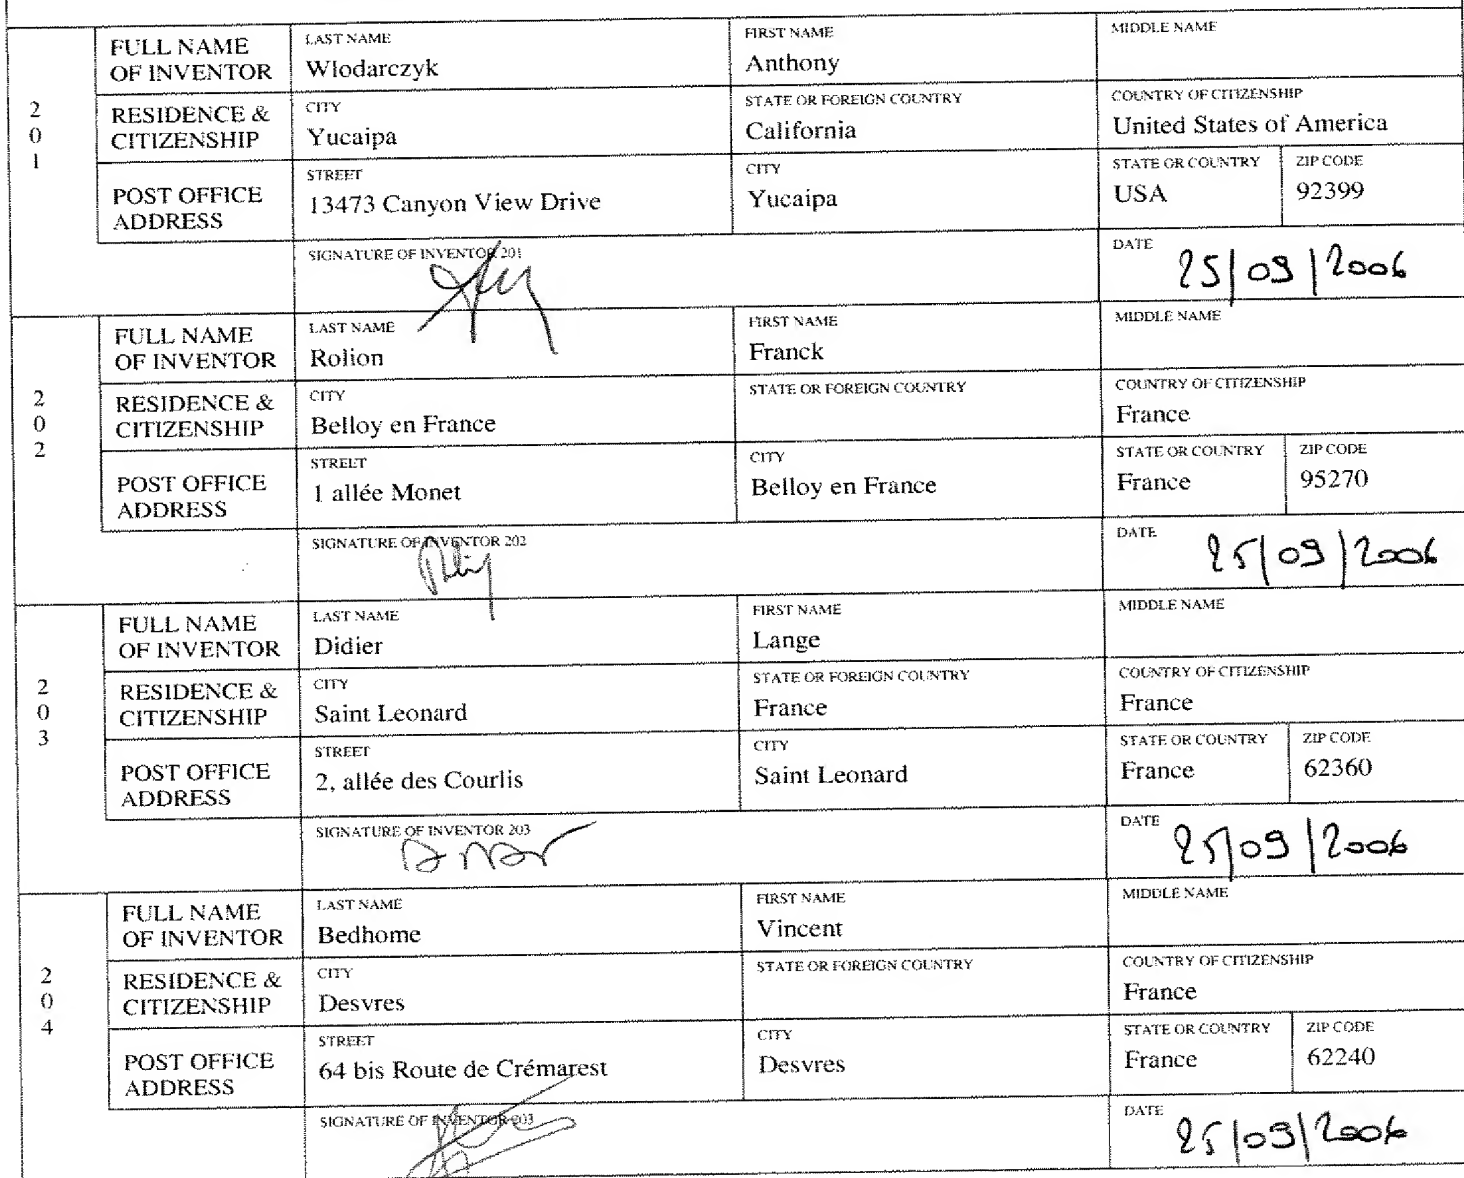 FULL NAME OF INVENTOR LAST NAME Wlodarczyk FIRST NAME Anthony MIDDLE NAME
201
RESIDENCE & CITIZENSHIP CITY Yucaipa STATE OR FOREIGN COUNTRY California COUNTRY OF CITIZENSHIP United States of America
POST OFFICE ADDRESS STREET 13473 Canyon View Drive CITY Yucaipa STATE OR COUNTRY USA ZIP CODE 92399
SIGNATURE OF INVENTOR 201 DATE 25/09/2006
FULL NAME OF INVENTOR LAST NAME Rolion FIRST NAME Franck MIDDLE NAME
202
RESIDENCE & CITIZENSHIP CITY Belloy en France STATE OR FOREIGN COUNTRY COUNTRY OF CITIZENSHIP France
POST OFFICE ADDRESS STREET 1 allée Monet CITY Belloy en France STATE OR COUNTRY France ZIP CODE 95270
SIGNATURE OF INVENTOR 202 DATE 25/09/2006
FULL NAME OF INVENTOR LAST NAME Didier FIRST NAME Lange MIDDLE NAME
203
RESIDENCE & CITIZENSHIP CITY Saint Leonard STATE OR FOREIGN COUNTRY France COUNTRY OF CITIZENSHIP France
POST OFFICE ADDRESS STREET 2, allée des Courlis CITY Saint Leonard STATE OR COUNTRY France ZIP CODE 62360
SIGNATURE OF INVENTOR 203 DATE 25/09/2006
FULL NAME OF INVENTOR LAST NAME Bedhome FIRST NAME Vincent MIDDLE NAME
204
RESIDENCE & CITIZENSHIP CITY Desvres STATE OR FOREIGN COUNTRY COUNTRY OF CITIZENSHIP France
POST OFFICE ADDRESS STREET 64 bis Route de Crémarest CITY Desvres STATE OR COUNTRY France ZIP CODE 62240
SIGNATURE OF INVENTOR 203 DATE 25/09/2006